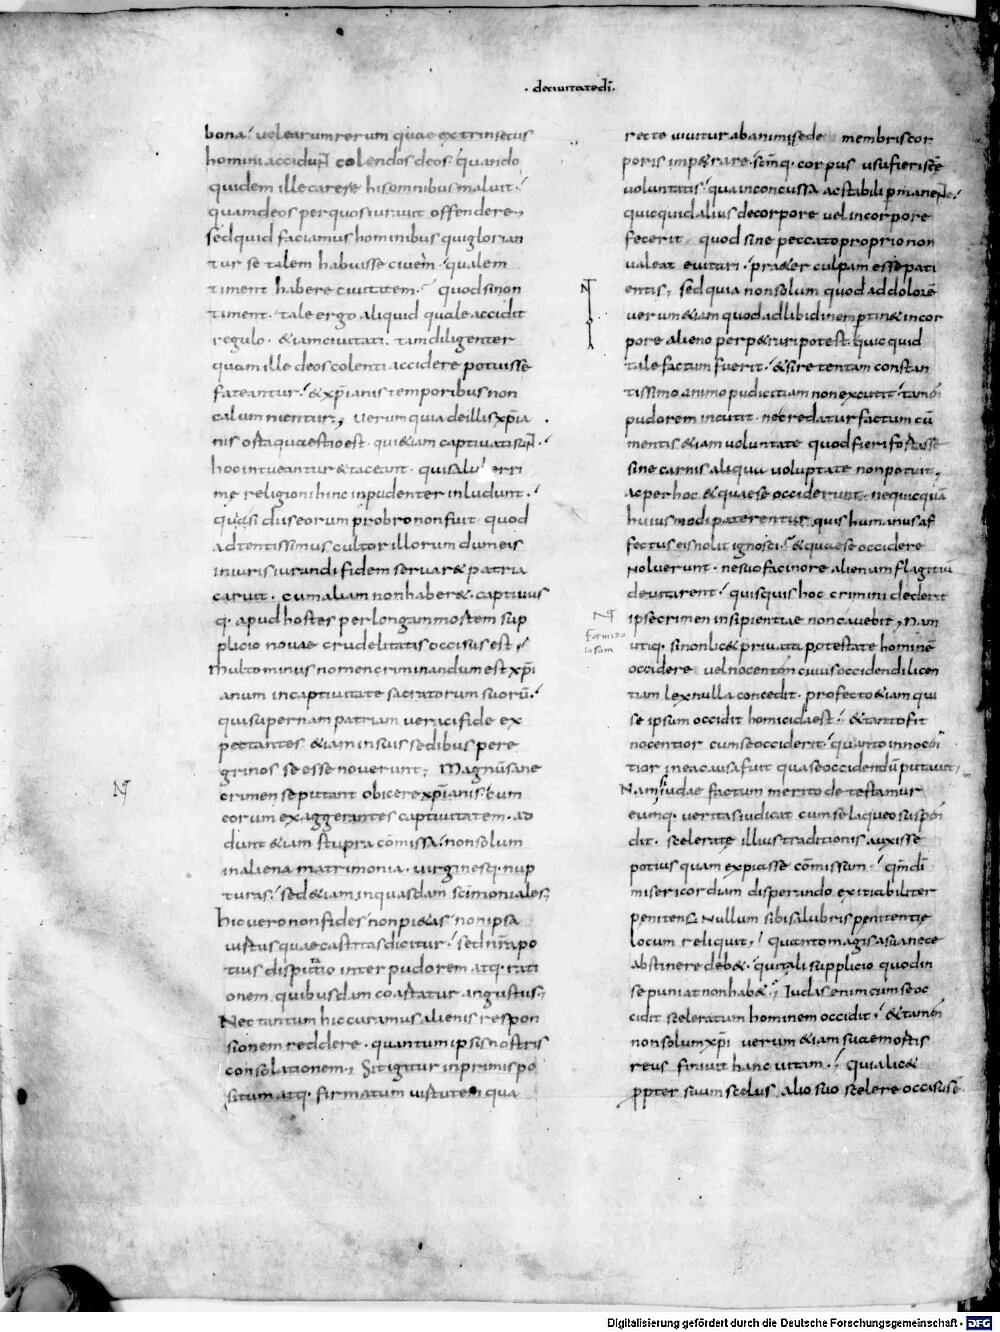 · deciuitatedī ·
bona · uel earum rerum quae extrinsecus
homini accidunt colendos deos quando
quidem ille carere his omnibus maluit ·
quam deos per quos iurauit offendere,
sed quid faciamus hominibus qui glorian
tur se talem habuisse ciuem · qualem
timent habere ciuitatem · quod si non
timent · tale ergo aliquid quale accidit
regulo · &iam ciuitati · tam diligenter
quam ille deos colenti accidere potuisse
fateantur · & xp̄ianis temporibus non
calumnientur, uerum quia de illis xp̄ia
nis osta quaestio est · qui &iam captiuati sunt ·
hoc intueantur & taceant · qui salu erri
me religioni hinc inpudenter inludunt ·
quasi diis eorum probro non fuit · quod
adtentissimus cultor illorum dum eis
iniuris iurandi fidem seruar& patria
caruit · cum aliam non haber& · captiuus
q· apud hostes per longam mostem sup
plicio nouae crudelitatis occisus est ·
Multo minus nomen criminandum est xp̄i
anum in captiuitate sacratorum suorū ·
qui supernam patriam ueraci fide ex
pectantes &iam insuis sedibus pere
grinos se esse nouerunt; Magnū sane
crimen se putant obicere xp̄ianis · cum
eorum exaggerantes captiuitatem · ad
dunt &iam stupra cōmissa · non solum
in aliena matrimonia · uirginesq· nup
turas · sed &iam in quasdam scimoniales;
hic uero non fides non pi&as non ipsa
uistus quae castitas dicitur · sed nr̄a po
tius disputatio inter pudorem atq· rati
onem quibusdam coastatur angustus;
Nec tantum hic curamus alienis respon
sionem reddere · quantum ipsis nostris
consolationem · Sit igitur inprimis po
situm atq· firmatum uistutem qua
recte uiuitur ab animi sede membris cor
poris imp&rare · sc̄mq· corpus usu fieri sc̄e
uoluntatis · qua inconcussa ac stabili p̱manente ·
quicquid alius de corpore uel in corpore
fecerit quod sine peccato proprio non
ualeat euitari · praet&r culpam esse pati
entis, sed quia non solum quod ad dolorē
uerum &iam quod ad libidinem p̱tin& in cor
pore alieno perp&rari potest · quicquid
tale factum fuerit · & si retentam constan
tissimo animo pudicitiam non excutit · tam̄
pudorem incutit · ne credatur factum cū
mentis &iam uoluntate quod fieri fostasse
sine carnis aliqua uoluptate non potuit,
ac per hoc & quae se occiderunt · ne quicquā
huius modi paterentur quis humanus af
fectus eis nolit ignosci · & quae se occidere
Noluerunt · ne suo facinore alienam flagitiū
deuitarent · quisquis hoc crimini dederit
ipse crimen insipientiae non cauebit, Nam
utiq· si non lic& priuata potestate hominē
occidere uel nocentem cuius occidendi licen
tiam lex nulla concedit · profecto &iam qui
se ipsum occidit homicida est · & tanto fit
nocentior cum se occiderit · quanto innocē
tior in ea causa fuit qua se occidendū putauit,
Nam si iudae factum merito detestamur
eumq· ueritas iudicat cum se laqueo suspen
dit · scelerate illius traditionis auxisse
potius quam expiasse cōmissum · qm̄ dī
misericordiam disperando exitiabiliter
penitens Nullum sibi salubris penitentię
locum reliquit, quanto magis asua nece
abstinere deb& · qui tali supplicio quod in
se puniat non hab& · Iudas enim cum se oc
cidit sceleratum hominem occidit · & tamen
non solum xp̄i uerum &iam suae mostis
reus finiuit hanc uitam · quia lic&
ꝓpter suum scelus alio suo scelere occisus ē
formido
losam